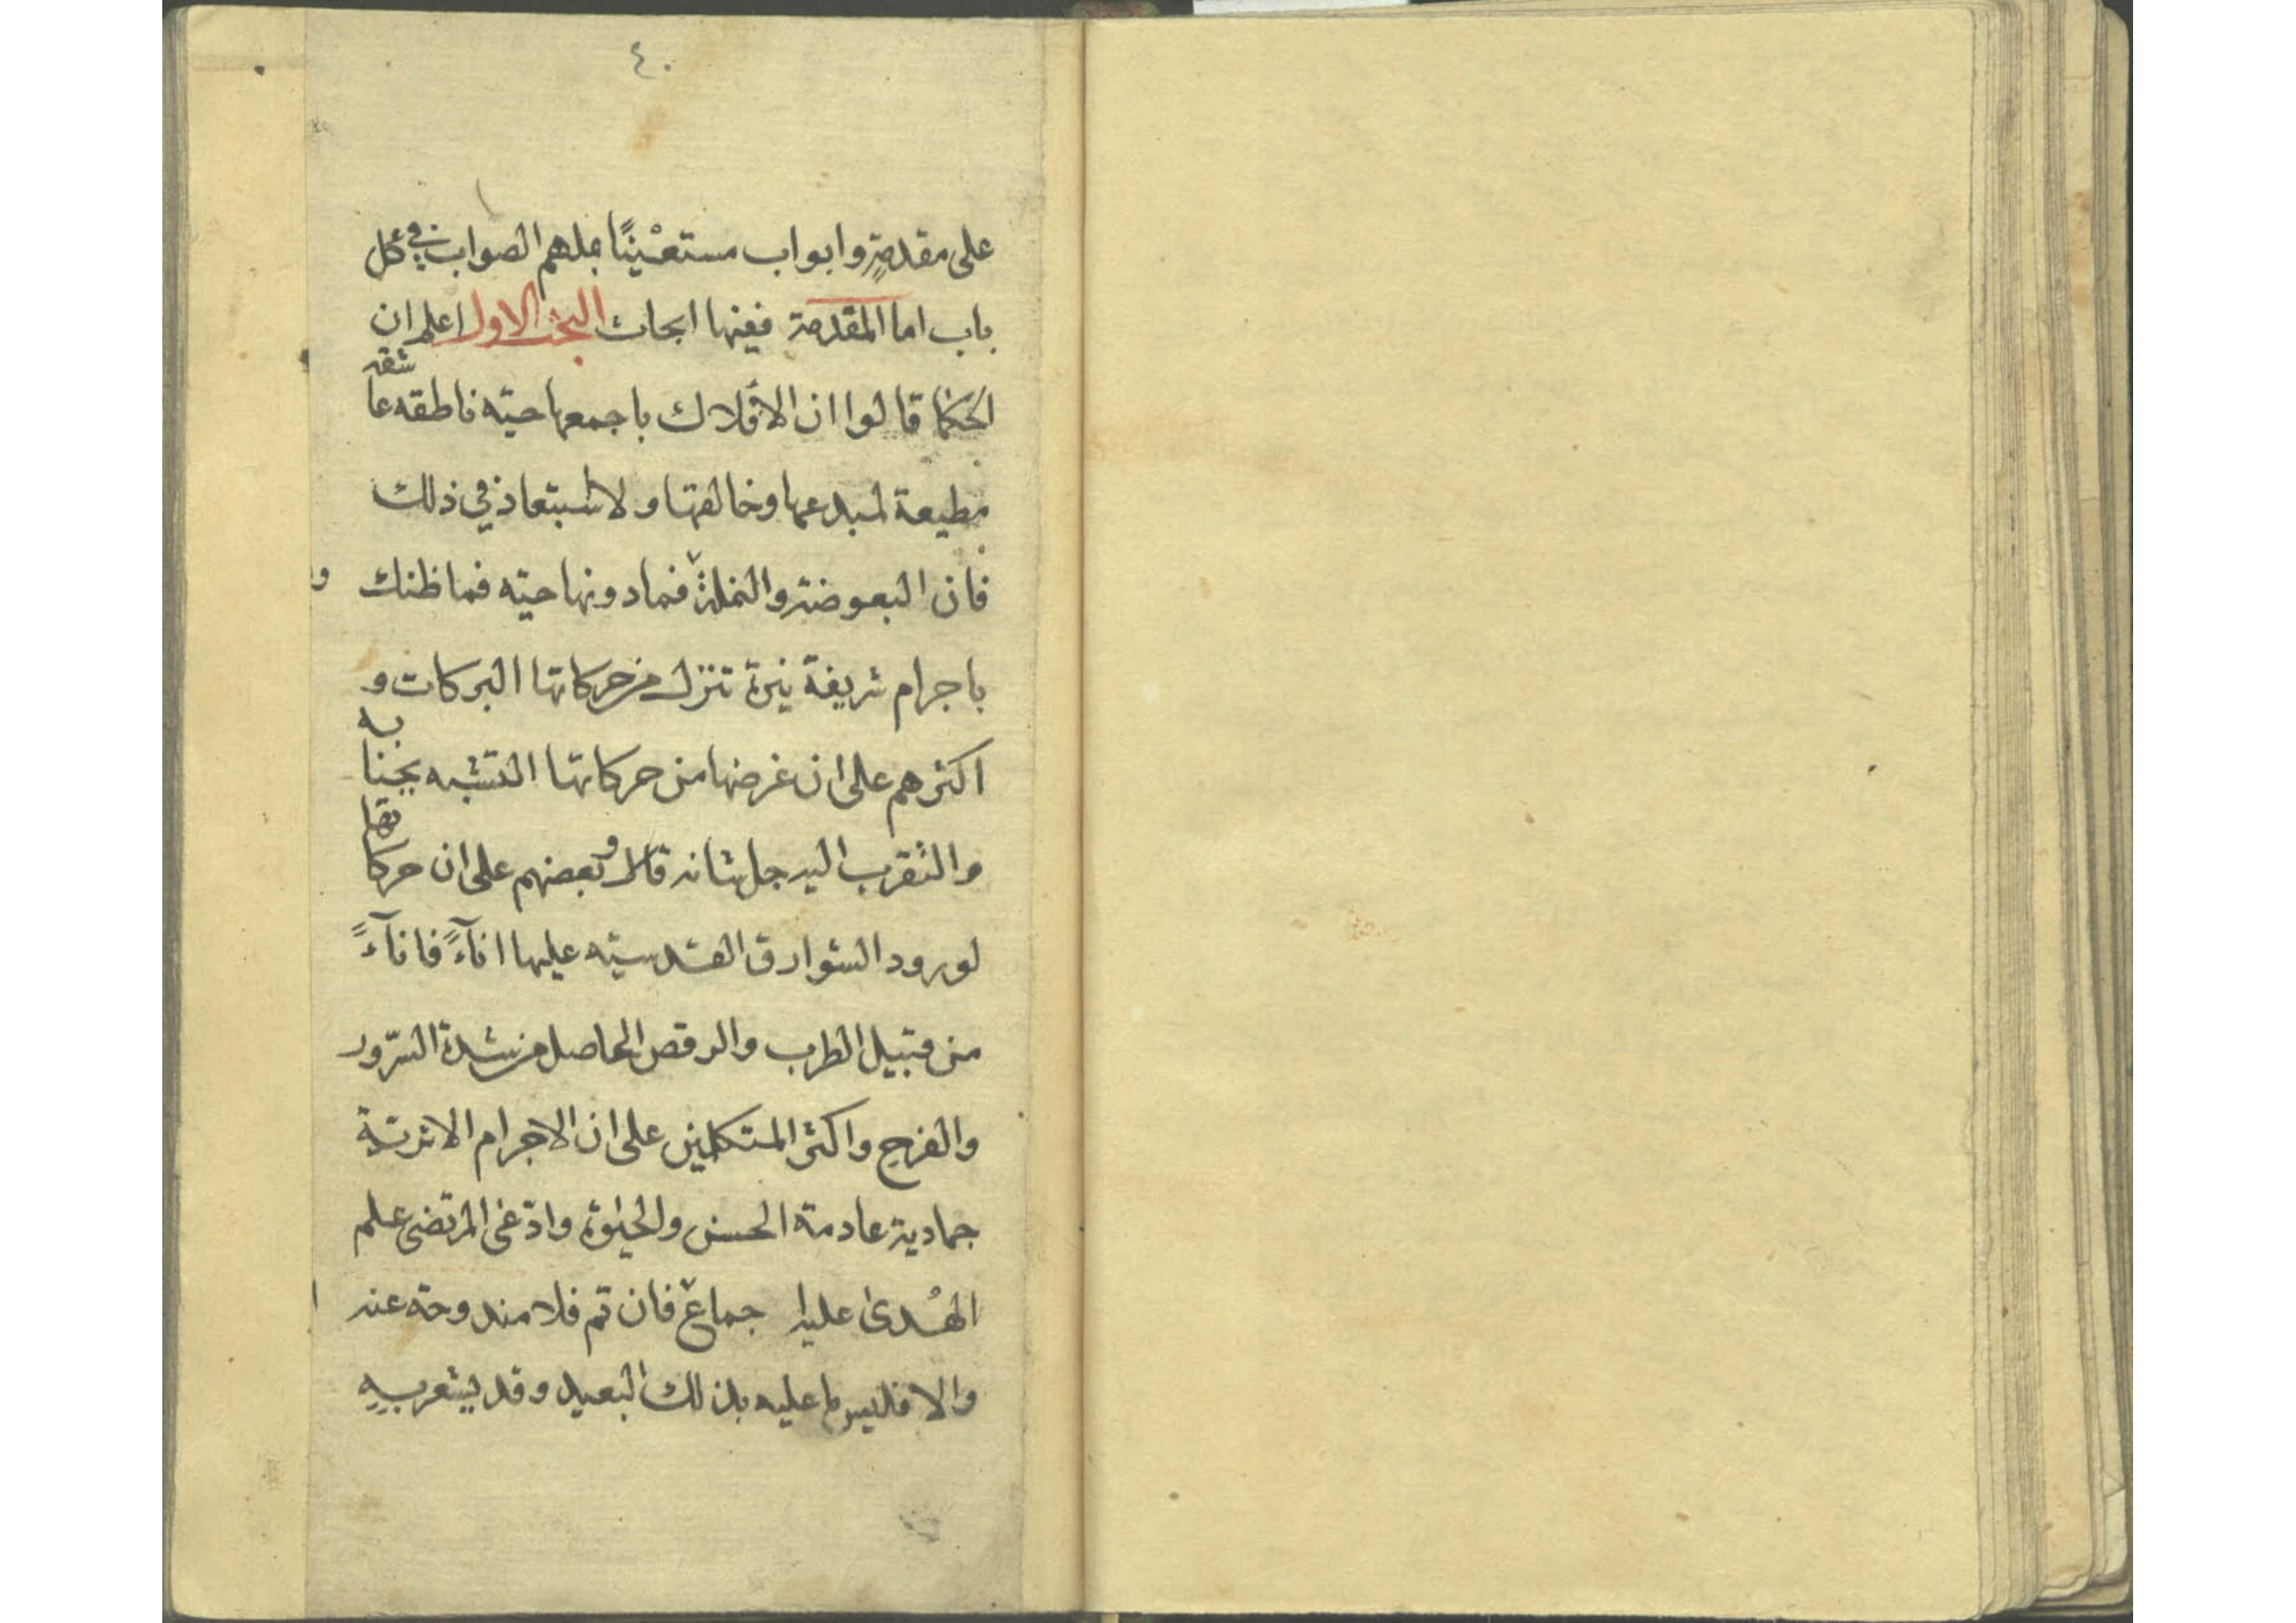 ٤٠
على مقدمةٍ وابواب مستعْينًا بملهم الصواب في كل
باب اما المقدمة ففيها ابحاث البحث الاول اعلم ان
الحكما قالوا ان الافلاك باجمعها حيّه ناطقه عاشقه
مطيعة لمبدعها وخالقها ولا استبعاد في ذلك
فان البعوضة والنملة فما دونها حيّه فما ظنك
باجرام شريفة نيرة تنزل من حركاتها البركات و
اكثرهم على ان غرضها من حركاتها التشبه بجنابه
والتقرب اليه جل شانه وبعضهم على ان حركاتها
لورود الشوارق القدسيّه عليها اناًءً فاناًءً
من قبيل الطرب والرقص الحاصل من شدة السّرور
والفرح واكثر المتكلمين على ان الاجرام الاثريّة
جمادية عادمة الحس والحيٰوة وادّعى المرتضى علم
الهُدىٰ عليه ا جماع فان تم فلا مندوحة عنه
والا فليس ما عليه بذلك البعيد وقد يشعر بهِ